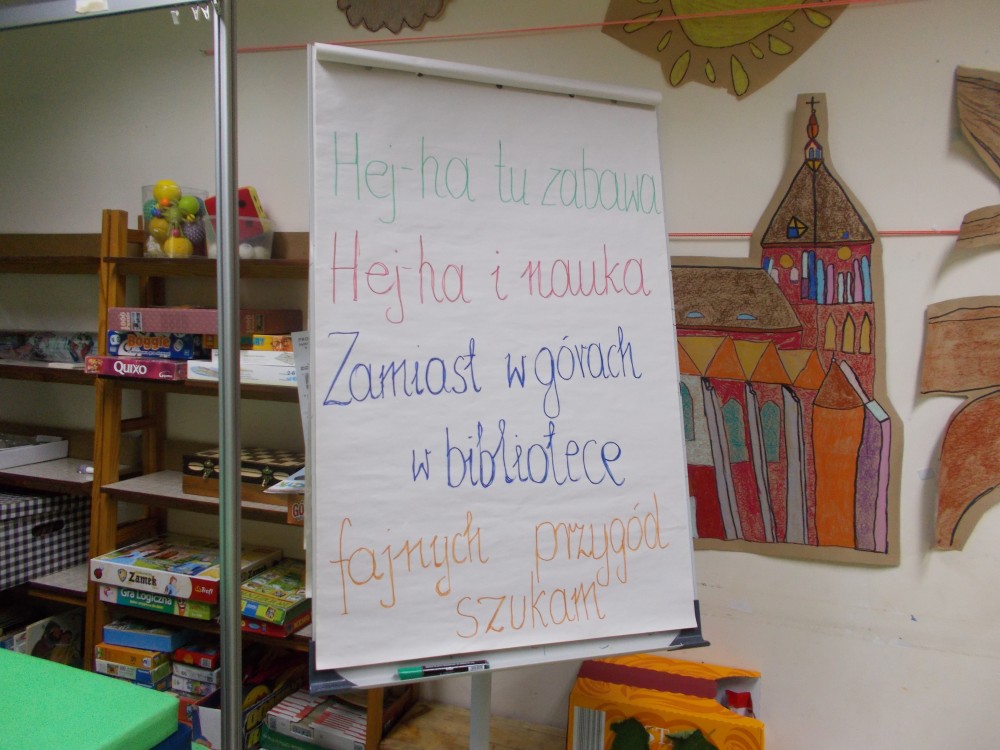 Hej-ha tu zabawa
Hej ha i nauka
Zamiast w górach
w bibliotece
fajnych przygód
szukam
Boggle
QUIXO
Zamek
Gra Logiczna